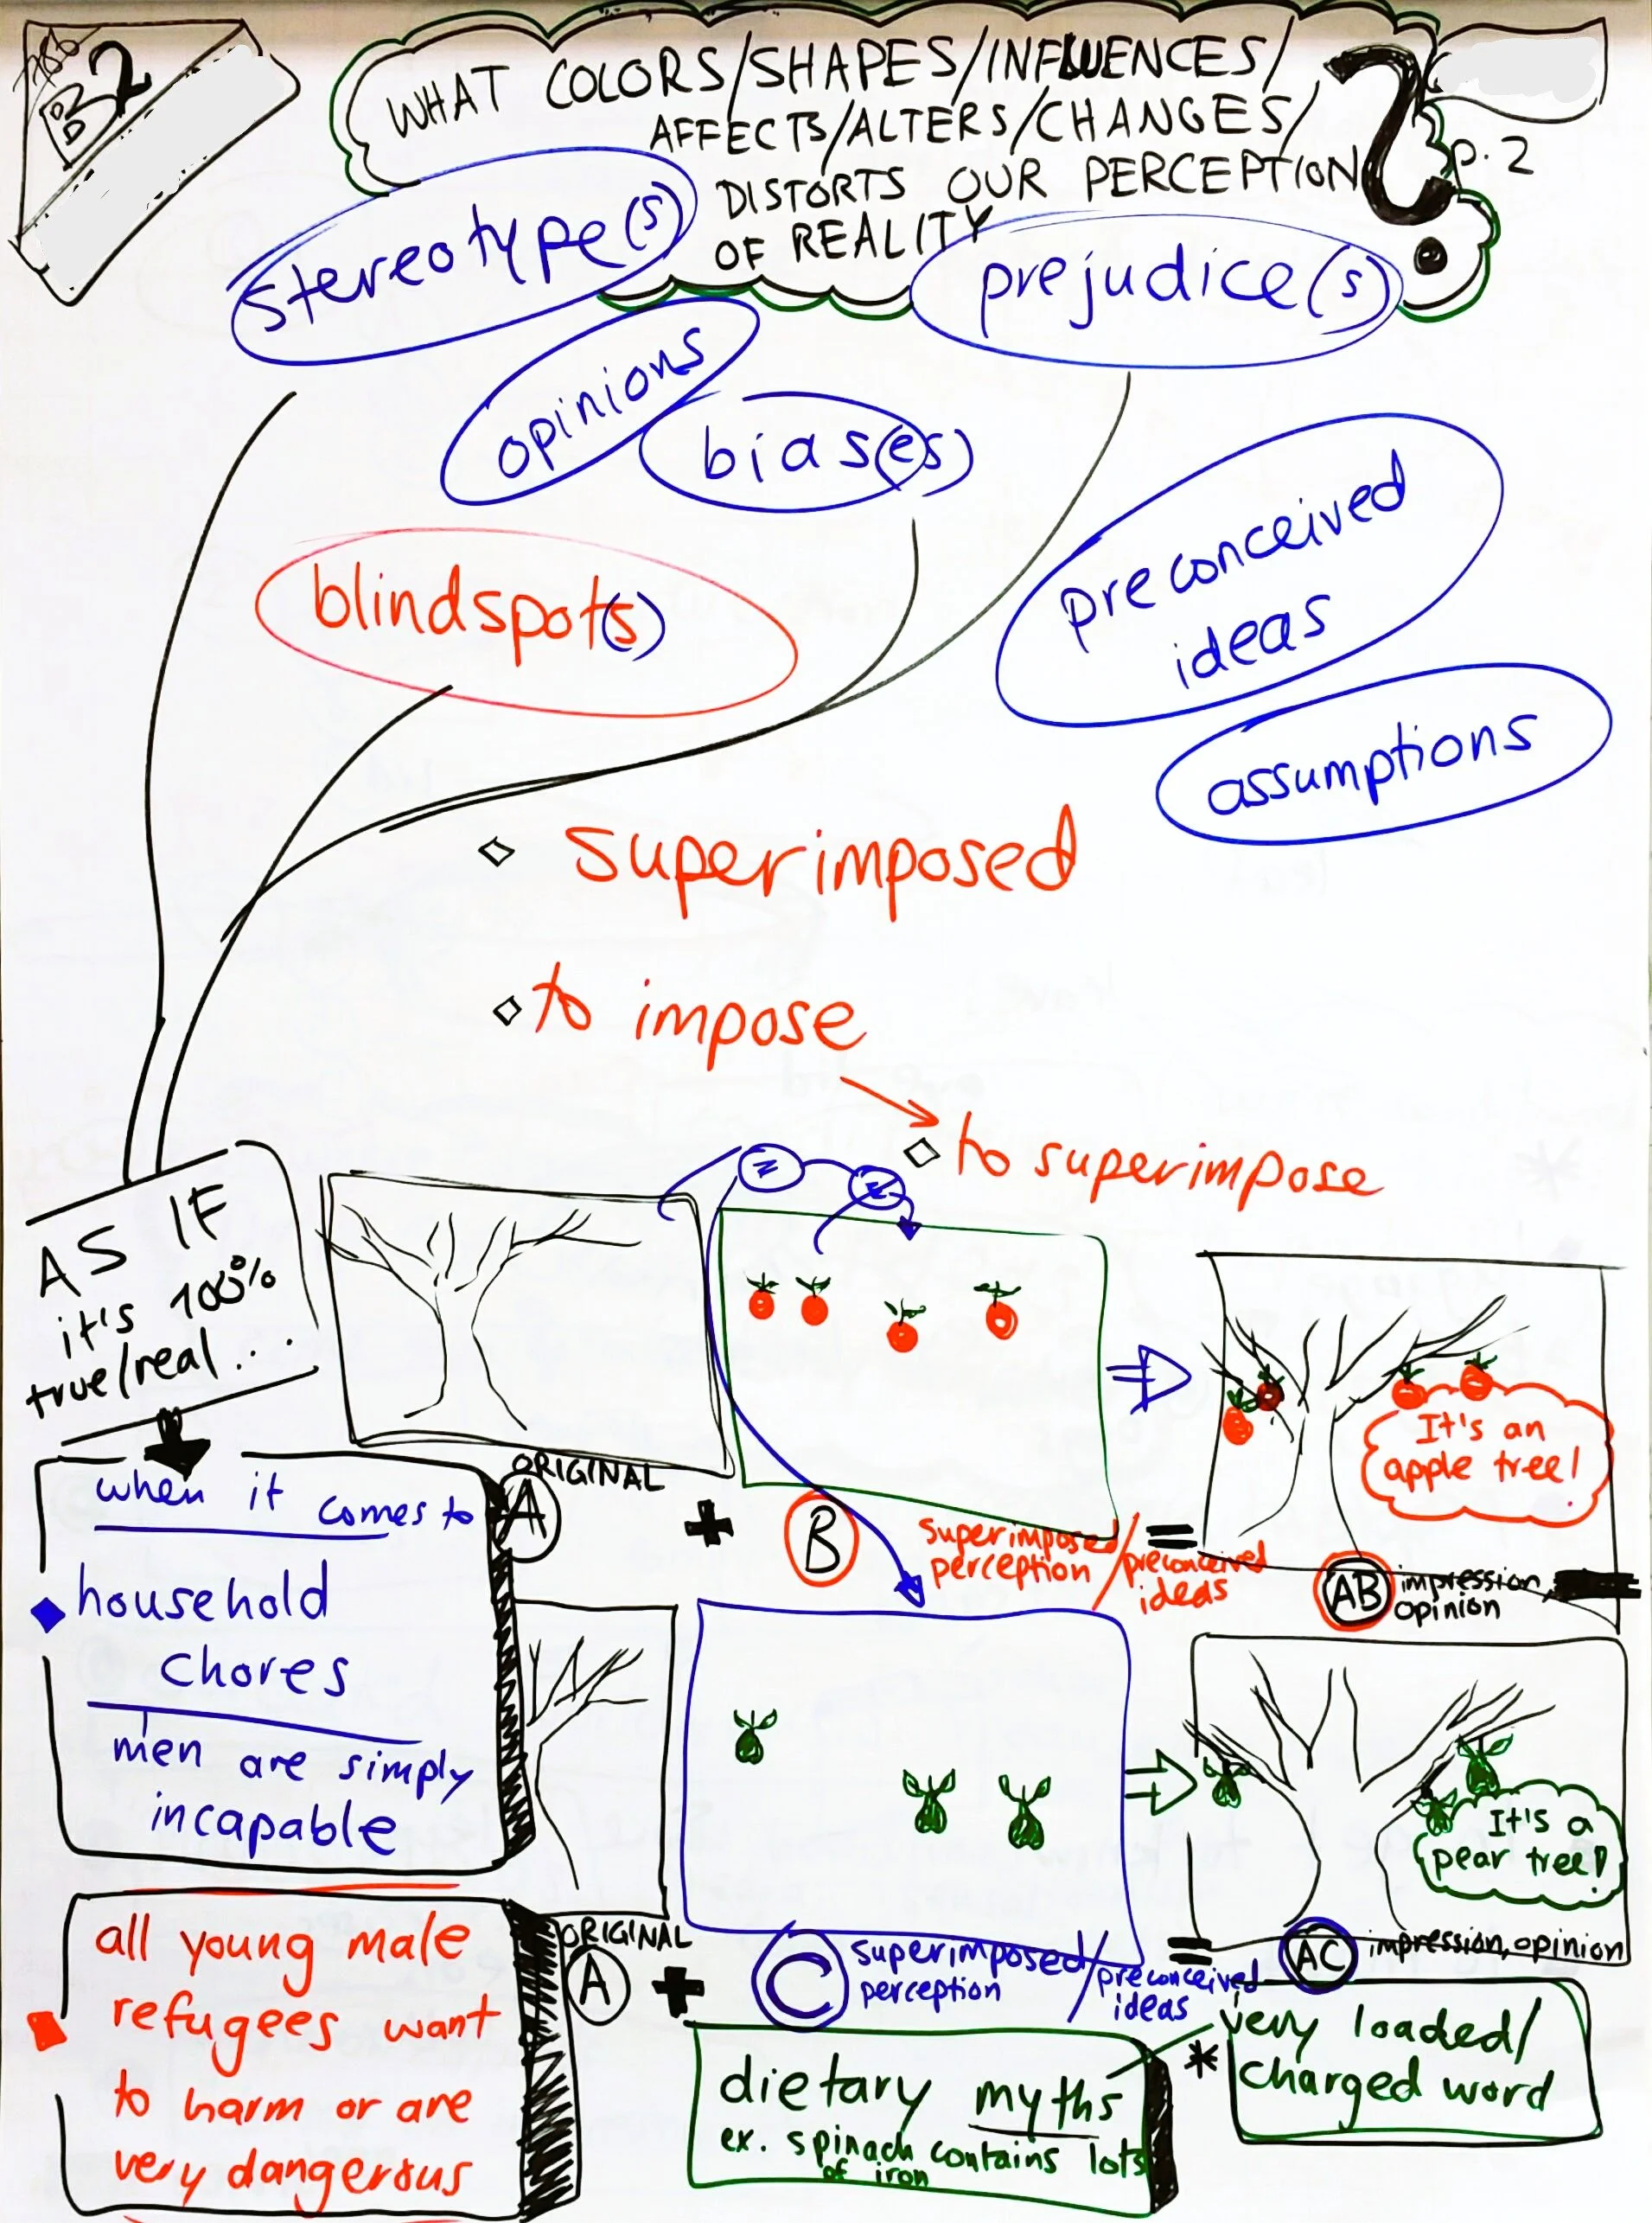 B2
WHAT COLORS/SHAPES/INFLUENCES/
AFFECTS/ALTERS/CHANGES/
DISTORTS OUR PERCEPTION
OF REALITY
?
p. 2
stereotype(s)
prejudice(s)
opinions
bias(es)
preconceived
ideas
blindspot(s)
assumptions
superimposed
to impose
to superimpose
AS IF
it's 100%
true/real...
It's an
apple tree!
ORIGINAL
A
+
B
superimposed
perception
/
preconceived
ideas
=
AB
impression,
opinion
when it comes to
household
chores
men are simply
incapable
It's a
pear tree!
ORIGINAL
A
+
C
superimposed
perception
/
preconceived
ideas
=
AC
impression, opinion
all young male
refugees want
to harm or are
very dangerous
dietary myths
ex. spinach contains lots
of iron
*
very loaded/
charged word